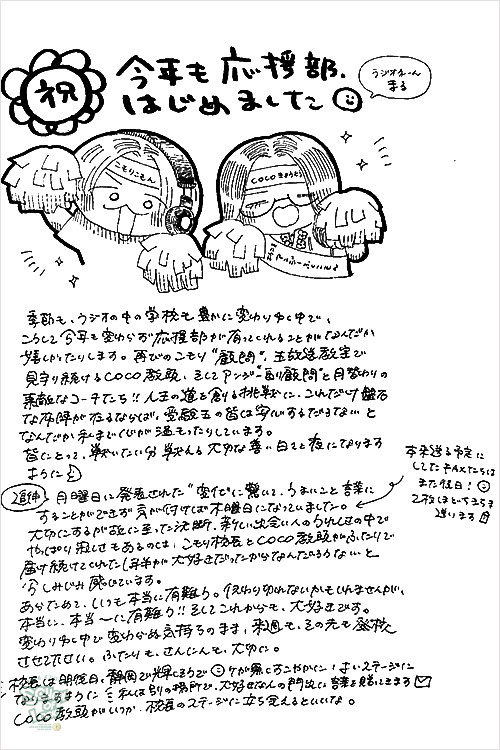 祝
今年も応援部、
はじめました
ラジオネーム
まる
こもりこもん
COCOきょうとう
季節も、ラジオの中の学校も豊かに変わりゆく中で、
こうして今年も変わらず応援部が有ってくれることがなんだか
嬉しかったりします。再びのこもり"顧問"、生放送教室で
見守り続けるCOCO教頭、そしてアンジー"副顧問"と月替わりの
素敵なコーチたち!!人生の道を創る挑戦に、これだけ盤石
な布陣が在るならば、受験生の皆は安心するだろうな、と
なんだか私まで心が温もったりしています。
皆にとって、戦いたい分戦える大切な善い日々と夜になります
ように
2通伸 月曜日に発表された"変化"に驚いて、うまいこと言葉に
することができず気が付けば木曜日になっていました。
大切にするが故に至った決断、新しい出会いへのうれしさの中で
やっぱり淋しさもあるのは、こもり校長とCOCO教頭がふたりで
届け続けてくれた1年半が大好きだったからなんだろうな、と
今しみじみ感じています。
あらためて、いつも本当に有難う。伝わり切れないかもしれませんが、
本当に、本当〜に有難う!!そしてこれからも、大好きです。
変わりゆく中で変わらぬ気持ちのまま、来週も、その先も登校
させて下さい。ふたりも、さんにんも、大切に。
校長は明後日、静岡で輝くそうで
なりますように 私は別の場所で、大好きな人の門出に言葉を贈ってきます
COCO教頭がいつか、校長のステージに立ち会えるといいな。
本来送る予定に
してたFAXたちは
また後日!
2枚ほどいきなり
送ります